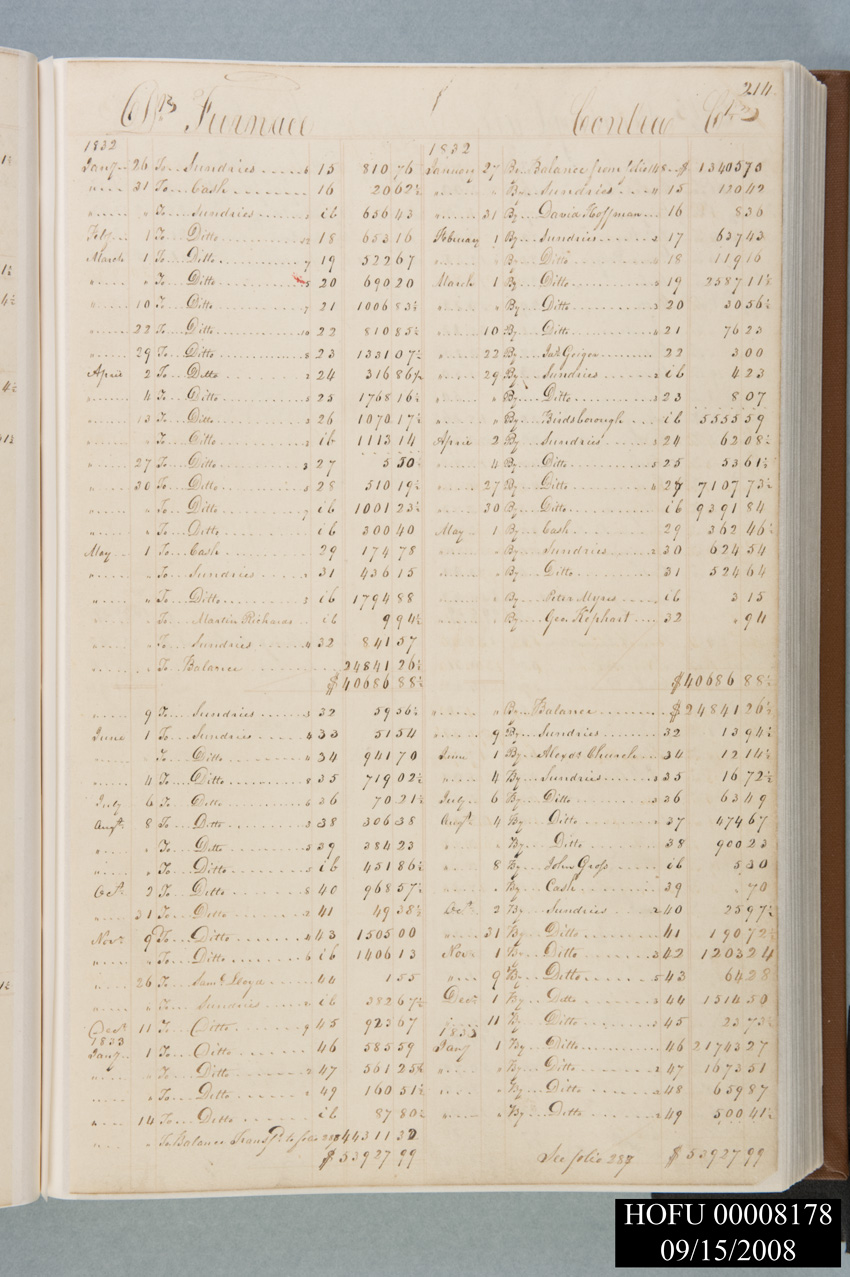 214
Dr Furnace
Contra Crs
1832
Jany 26 To Sundries 6 15 810 76
" 31 To Cash 16 20 62½
" " To Sundries ib 636 43
Feby 1 To Ditto 18 653 16
March 1 To Ditto 7 19 522 67
" " To Ditto 8 20 690 20
" 10 To Ditto 21 1006 83½
" 22 To Ditto 10 22 810 85½
" 29 To Ditto 8 23 1331 07½
April 2 To Ditto 24 316 86¼
" 4 To Ditto 25 1768 16½
" 13 To Ditto 26 1070 17½
" " To Ditto ib 1113 14
" 27 To Ditto 27 5 50
" 30 To Ditto 28 510 19½
" " To Ditto ib 1001 23½
" " To Ditto ib 300 40
May 1 To Cash 29 174 78
" " To Sundries 31 436 15
" " To Ditto ib 1794 88
" " To Martin Richards ib 9 94½
" " To Sundries 4 32 841 57
" " To Balance 24841 26½
$ 40686 88½
" 9 To Sundries 32 59 36½
June 1 To Sundries 33 51 54
" " To Ditto 34 941 70
" 4 To Ditto 8 35 719 02½
July 6 To Ditto 36 70 21½
Augt 8 To Ditto 38 306 38
" " To Ditto 39 384 23
" " To Ditto ib 451 86½
Oct 2 To Ditto 8 40 968 57½
" 31 To Ditto 41 49 38½
Novr 9 To Ditto 43 1505 00
" " To Ditto 6 ib 1406 13
" 26 To Saml Lloyd 44 1 55
" " To Sundries ib 382 67½
Decr 11 To Ditto 9 45 923 67
1833
Jany 1 To Ditto 46 585 59
" " To Ditto 47 561 25½
" " To Ditto 49 160 51½
" 14 To Ditto ib 87 80½
" " To Balance Transfd to folio 287 44311 32
$ 53927 99
1832
January 27 By Balance from folio 148 $ 13405 73
" " By Sundries 4 15 120 42
" 31 By David Hoffman 16 8 36
February 1 By Sundries 2 17 637 43
" " By Ditto 18 119 16
March 1 By Ditto 19 2587 11½
" " By Ditto 20 30 56½
" 10 By Ditto 21 76 23
" 22 By Jas Geiger 22 3 00
" 29 By Sundries 2 ib 4 23
" " By Ditto 3 23 8 07
" " By Birdsborough ib 5555 59
April 2 By Sundries 24 62 08½
" 4 By Ditto 25 53 61½
" 27 By Ditto 27 7107 73½
" 30 By Ditto ib 9391 84
May 1 By Cash 29 362 46½
" " By Sundries 2 30 624 54
" " By Ditto 31 524 64
" " By Peter Myres ib 3 15
" " By Geo. Kephart 32 " 94
$ 40686 88½
" " By Balance $ 24841 26½
" 9 By Sundries 32 13 94½
June 1 By Alexdr Church 34 12 14½
" 4 By Sundries 3 35 16 72½
July 6 By Ditto 3 36 63 49
Augt 4 By Ditto 37 474 67
" " By Ditto 38 900 23
" 8 By John Gross ib 5 30
" " By Cash 39 " 70
Oct 2 By Sundries 2 40 25 97½
" 31 By Ditto 41 190 72½
Novr 1 By Ditto 3 42 1203 24
" 9 By Ditto 5 43 64 28
Decr 1 By Ditto 44 1314 50
" 11 By Ditto 3 45 23 73½
1833
Jany 1 By Ditto 46 21743 27
" " By Ditto 2 47 1673 51
" " By Ditto 2 48 659 87
" " By Ditto 2 49 500 41½
See folio 287 $ 53927 99
HOFU 00008178
09/15/2008